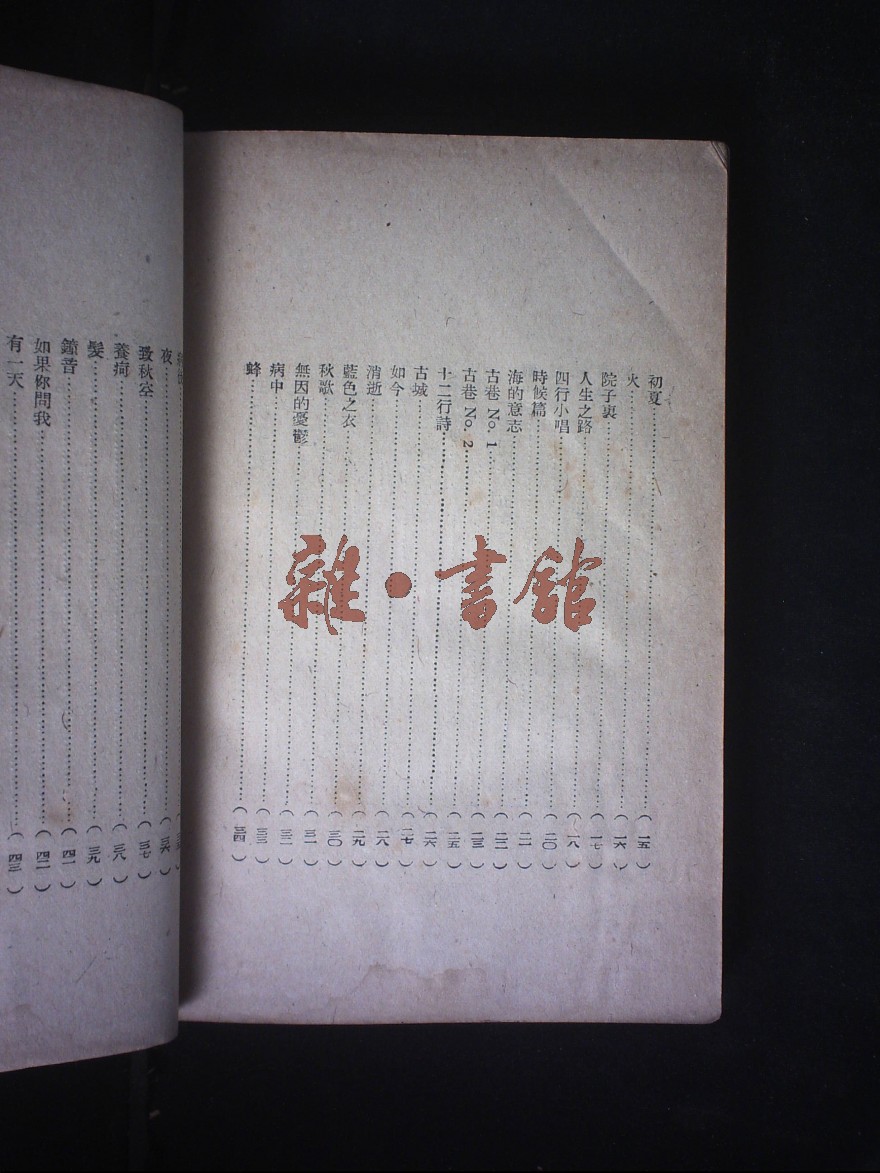 初夏……(一五)
火……(一六)
院子裏……(一七)
人生之路……(一八)
四行小唱……(二〇)
時候篇……(二一)
海的意志……(二二)
古巷 No. 1……(二三)
古巷 No. 2……(二五)
十二行詩……(二六)
古城……(二七)
如今……(二八)
消逝……(二九)
藍色之衣……(三〇)
秋歌……(三一)
無因的憂鬱……(三二)
病中……(三三)
蜂……(三四)
夜……(三六)
致秋空……(三七)
養疴……(三八)
髮……(三九)
鐘音……(四一)
如果你問我……(四二)
有一天……(四三)
雜•書館